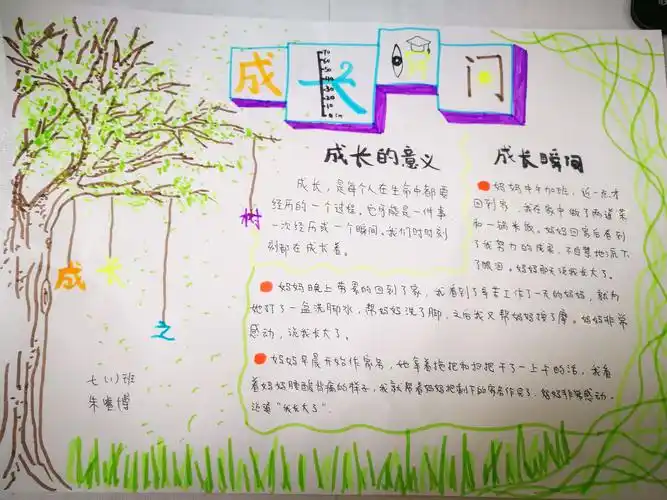 成长瞬间
70
60
50
40
30
20
10
0 cm
成长的意义
成长，是每个人在生命中都要
经历的一个过程。它可能是一件事
一次经历或一个瞬间。我们时时刻
刻都在成长着。
成长瞬间
妈妈中午加班，近一点才
回到家，我在家中做了两道菜
和一锅米饭。妈妈回家后看到
了我努力的成果，不自禁地流下
了眼泪。妈妈那天说我长大了。
妈妈晚上劳累的回到了家，我看到了辛苦工作了一天的妈妈，就为
她打了一盆洗脚水，帮妈妈洗了脚，之后我又帮妈妈按了摩。妈妈非常
感动，说我长大了。
妈妈早晨开始作家务，她拿着拖把和扫把干了一上午的活，我看
着妈妈腰酸背痛的样子，我就帮着妈妈把剩下的家务作完了。妈妈非常感动，
说道“我长大了”
成
长
之
树
七（1）班
朱睿博